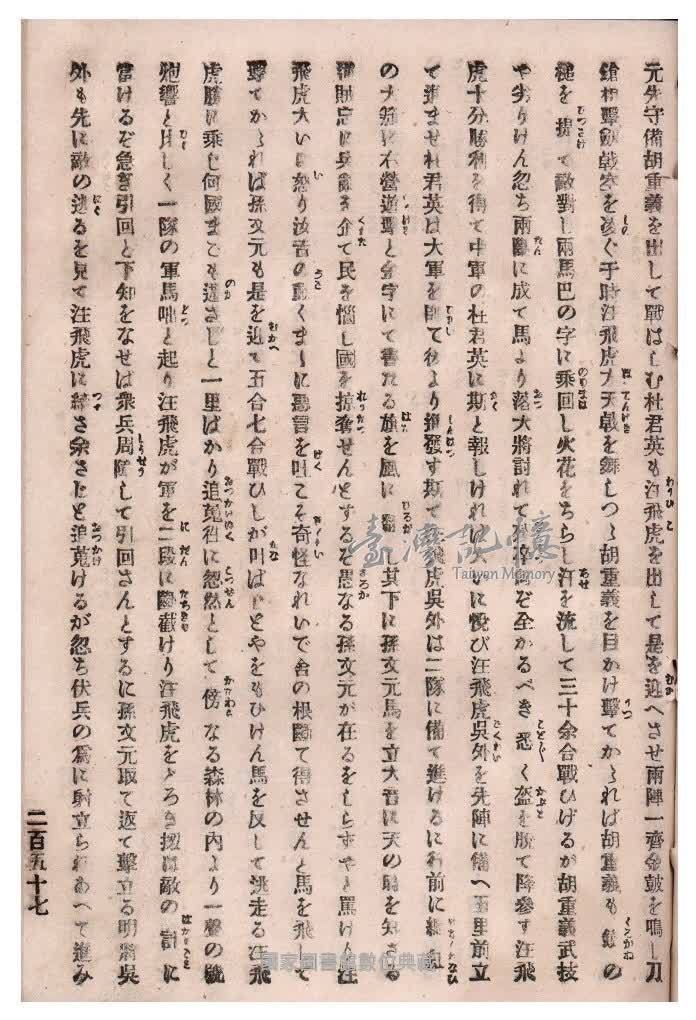 元失守備胡重義を出して戰はしむ杜君英も汪飛虎を出して是を迎へさせ兩陣一齊金鼓を鳴し刀
鎗相擊劔戟空を凌ぐ于時汪飛虎大天戟を舞しつゝ胡重義を目かけ擊てかゝれば胡重義も鐵の
槌を提て敵對し兩馬巴の字に乘回し火花をちらし汗を流して三十余合戰ひけるが胡重義武技
や劣りけん忽ち兩段に成て馬より落大將討れて士卒何ぞ全かるべき悉く盔を脫て降參す汪飛
虎十分勝利を得て中軍の杜君英に斯と報しければ大いに悅び汪飛虎吳外を先陣に備へ五里前立
て進ませ杜君英は大軍を て後より進發す斯て汪飛虎吳外は二隊に備て進けるに前に 紅
の大 に不 道 と金字にて書たる旗を風に飜し其下に孫文元馬を立大音に天の時を知ざる
賊 に兵亂を企て民を惱し國を掠奪せんとするぞ愚なる孫文元が在るをしらずやと罵けん汪
飛虎大いに怒り汝舌の動くまゝに惡言を吐こそ奇怪なれいで舌の根斷て得させんと馬を飛して
擊てかゝれば孫文元も是を迎て五合七合戰ひしが叶はじとやをもひけん馬を反して逃走る汪飛
虎勝に乘じ何國までも遁さじと一里ばかり追蒐往に忽然として傍なる森林の內より一聲の號
炮響と比しく一隊の軍馬咄と起り汪飛虎が軍を二段に斷截けり汪飛虎をどろき扨は敵の計に
當けるぞ急ぎ引回と下知をなせば衆兵周障して引回さんとするに孫文元取て返て擊立る明將吳
外も先に敵の逃るを見て汪飛虎に續き余さじと追蒐けるが忽ち伏兵の爲に射立られあへて進み
二百五十七
臺灣記憶
Taiwan Memory
國家圖書館數位典藏